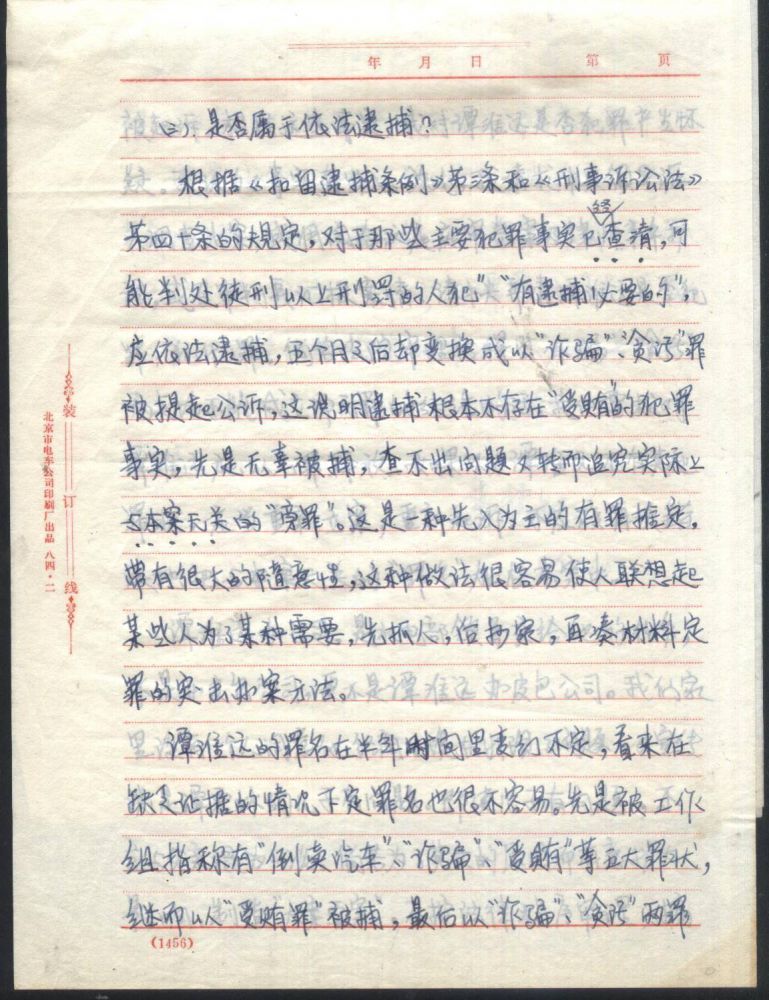 年 月 日 第 页
(三)、是否属于依法逮捕?
根据《扣留逮捕条例》第三条和《刑事诉讼法》
第四十条的规定,对于那些主要犯罪事实已经查清,可
能判处徒刑以上刑罚的人犯”“有逮捕必要的”,
应依法逮捕,五个月之后却变换成以“诈骗”、“贪污”罪
被提起公诉,这说明逮捕根本不存在“受贿”的犯罪
事实,先是无辜被捕,查不出问题又转而追究实际上
与本案无关的“旁罪”。这是一种先入为主的有罪推定,
带有很大的随意性,这种做法很容易使人联想起
某些人为了某种需要,先抓人,后抄家,再凑材料定
罪的突击办案方法。
谭淮远的罪名在半年时间里变幻不定,看来在
缺乏证据的情况下定罪名也很不容易。先是被工作
组指称有“倒卖汽车”、“诈骗”、“受贿”等五大罪状,
继而以“受贿罪”被捕,最后以“诈骗”、“贪污”两罪
装 订 线
北京市电车公司印刷厂出品 八四·二
(1456)